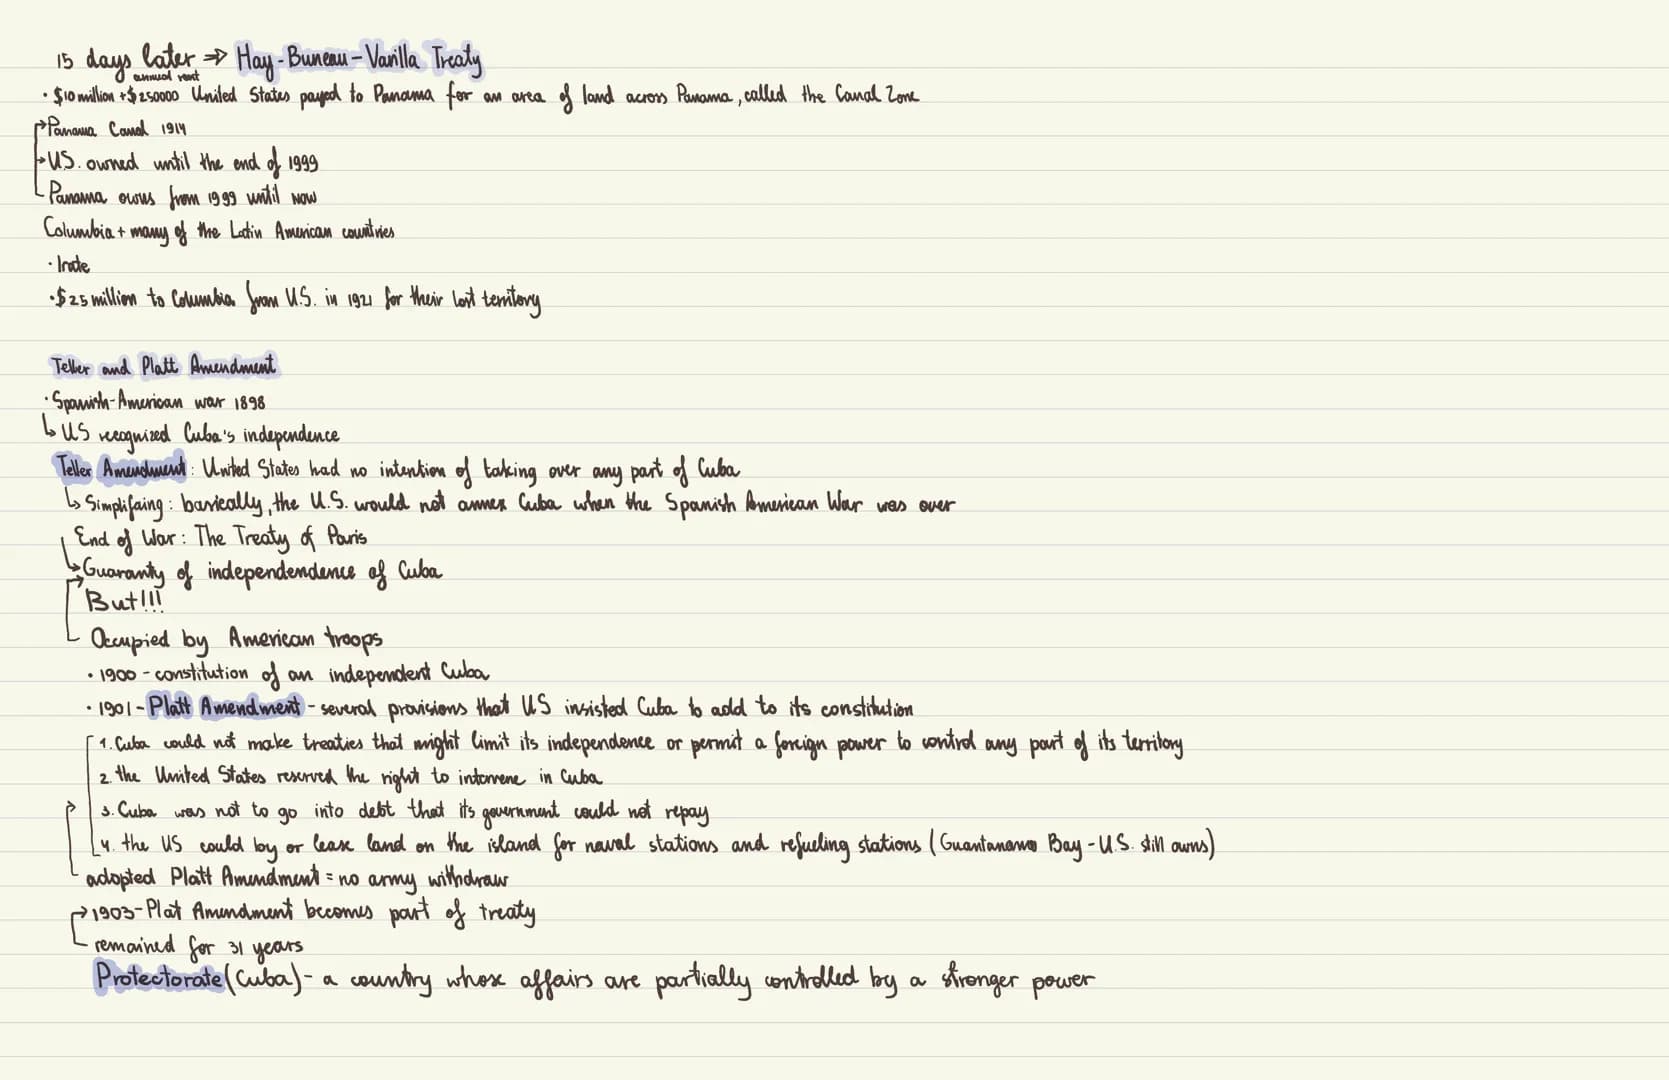 15 days later ⇒ Hay-Buneau-Varilla Treaty
annual rent
· $10 million + $250000 United States payed to Panama for an area of land across Panama, called the Canal Zone
→ Panama Canal 1914
→ US. owned until the end of 1999
Panama owns from 1999 until now
Columbia + many of the Latin American countries
· Irate
· $25 million to Columbia from U.S. in 1921 for their lost territory
Teller and Platt Amendment
· Spanish-American war 1898
↳ US recognized Cuba's independence
Teller Amendment: United States had no intention of taking over any part of Cuba
↳ Simplifaing: basically, the U.S. would not annex Cuba when the Spanish American War was over
End of War: The Treaty of Paris
↳ Guaranty of independendence of Cuba
But!!!
Occupied by American troops
· 1900 - constitution of an independent Cuba
· 1901 - Platt Amendment - several provisions that US insisted Cuba to add to its constitution
1. Cuba could not make treaties that might limit its independence or permit a foreign power to control any part of its territory
2. the United States reserved the right to intervene in Cuba
3. Cuba was not to go into debt that its government could not repay
4. the US could boy or lease land on the island for naval stations and refueling stations (Guantanamo Bay - U.S. still owns)
adopted Platt Amendment = no army withdraw
→ 1903 - Plat Amendment becomes part of treaty
remained for 31 years
Protectorate (Cuba) - a country whose affairs are partially controlled by a stronger power